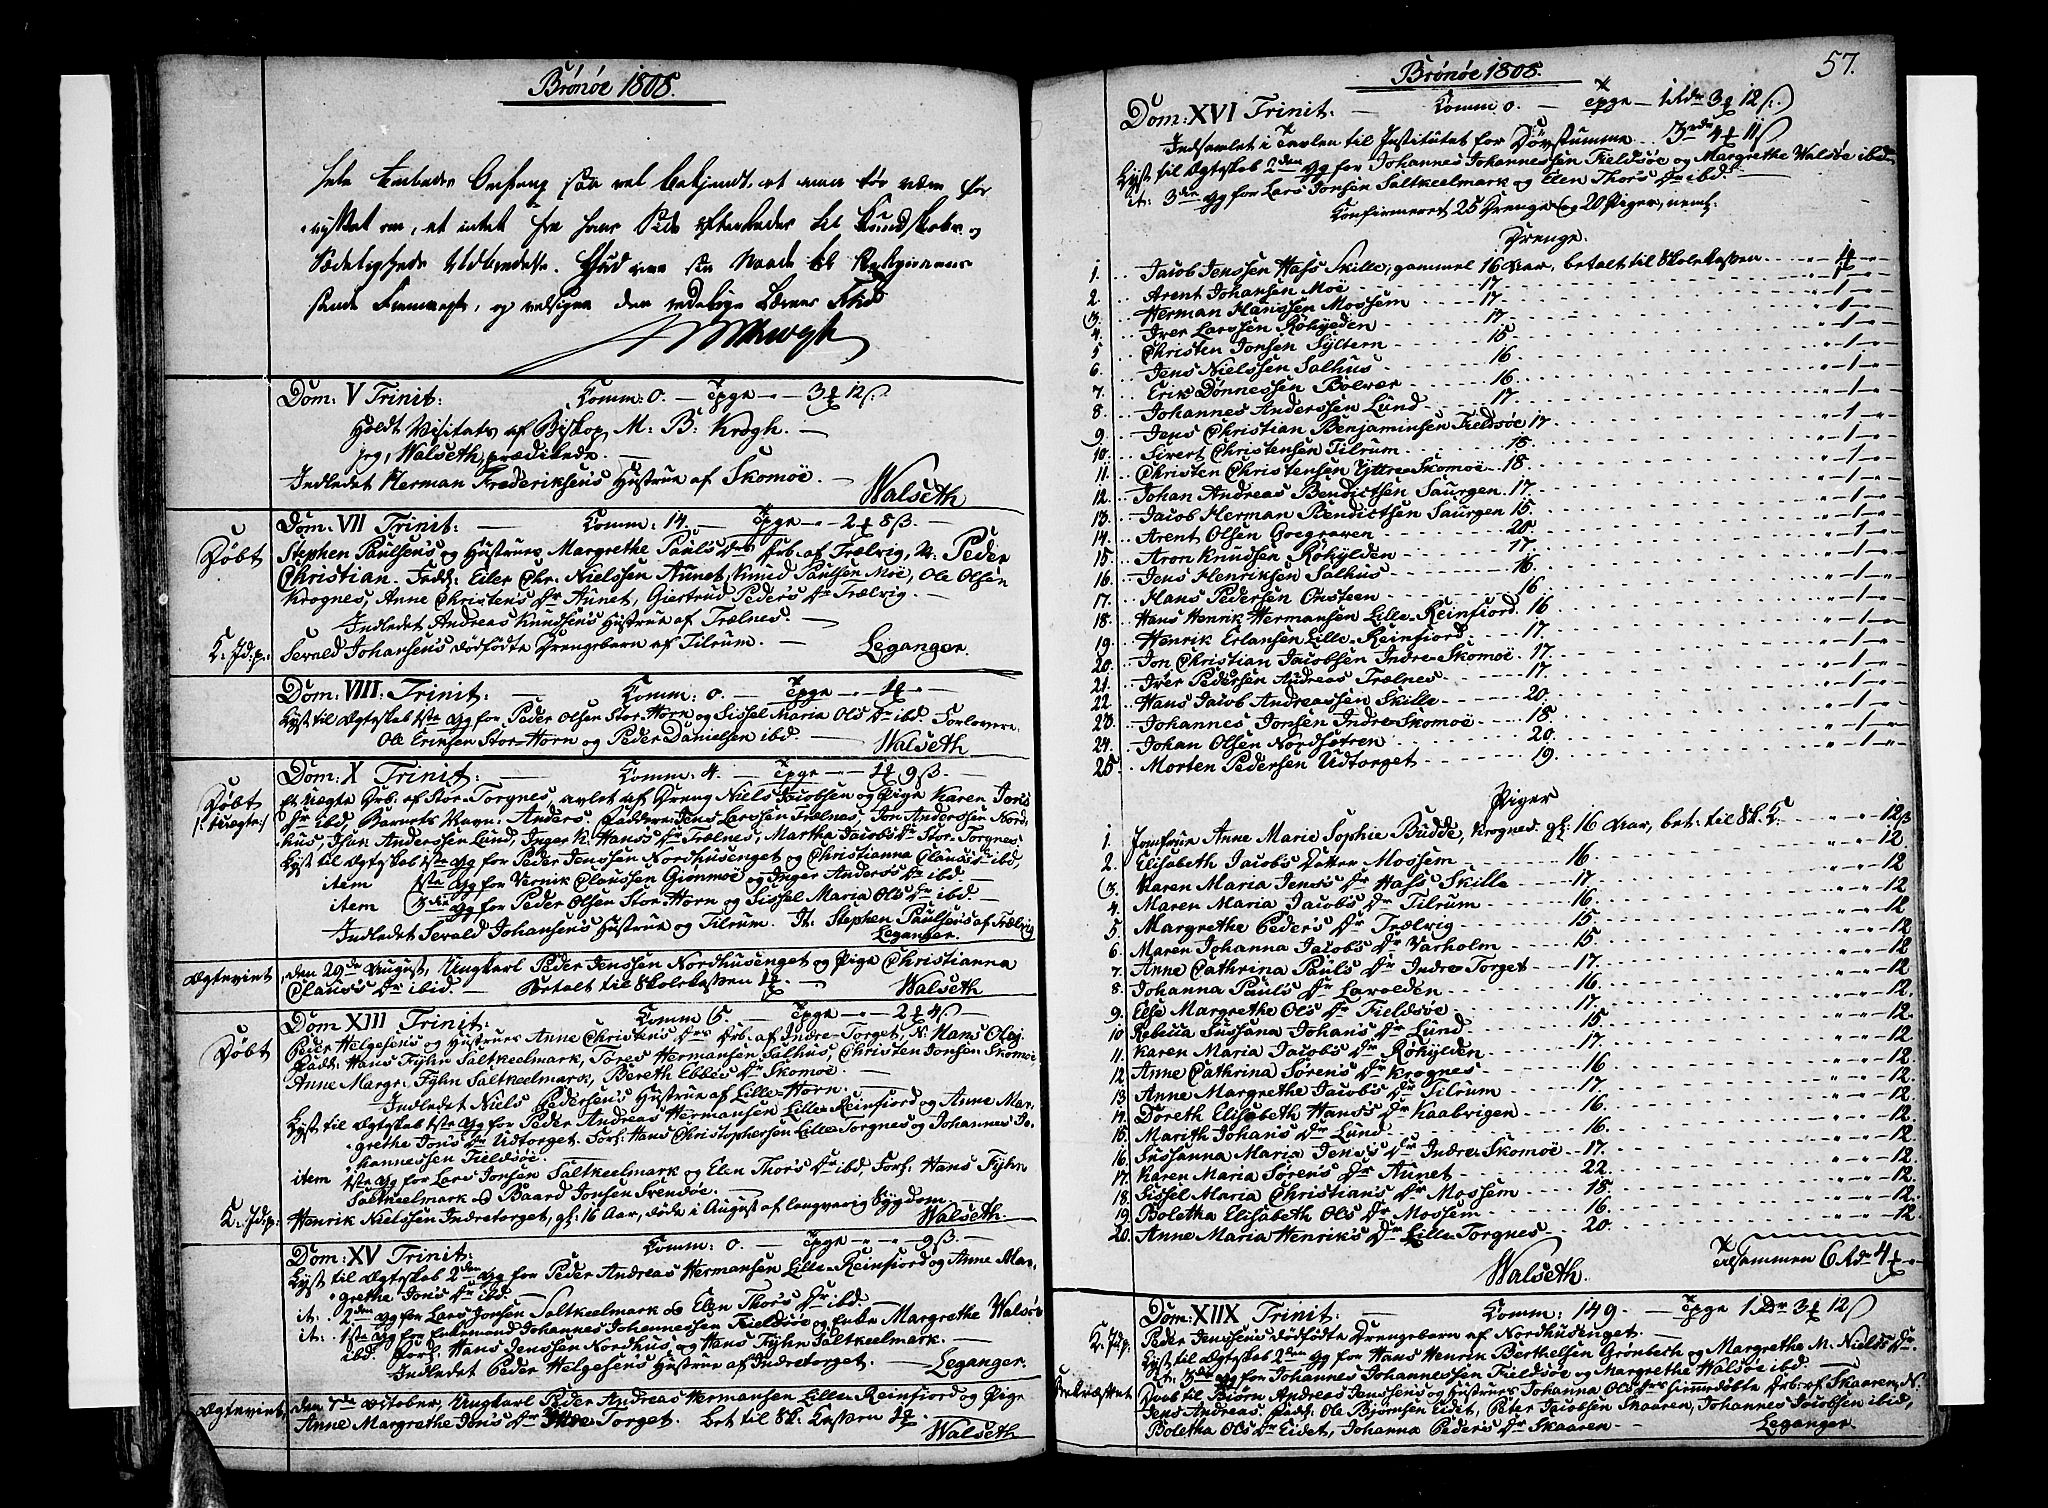 Brönöe 1808.
hele Embeds Omfang saa vel bekjendt, at man tør være for
visset om, at intet fra hans Side efterlades til Kundskabs og
Sædeligheds Udbredelse. Gud
og velsigne den redelige Lærers Flid
MBKrogh
Dom: V Trinit: Comm: 0. — Tpge — 3 ƻ 12 ß.
Holdt Visitats af Biskop M: B: Krogh. —
jeg, Walseth prædikede. —
Indledet Herman Frederiksens Hustrue af Skomoe. —
Walseth
Dom: VII Trinit: — Comm: 14. — Tpge — 2 ƻ 8 ß. —
Døbt
Stephen Paulsens og Hustrues Margrethe Pauls Drs Drb. af Trælvig, N: Peder
Christian. Fadd: Eiler Chr: Nielssen Aunet, Knud Paulsen Moe, Ole Olsen
Krognes, Anne Christens Dr Aunet, Giertrud Peders Dr Trælvig. —
Indledet Andreas Knudsens Hustrue af Trælnes. —
K: Jdp: Sevald Johansens dødfødte Drengebarn af Tilrum. — Leganger.
Dom: VIII. Trinit: Comm: 0. — Tpge — 1 ƻ —
Lyst til Ægteskab 1ste Gg for Peder Olsen Stor-Horn og Sissel Maria Ols Dr ibd. Forlovere
Ole Eriksen Stor-Horn og Peder Danielsen ibd. — Walseth
Dom: X Trinit: — Comm: 4. — Tpge — 1 ƻ 9 ß. —
Døbt
/: uægte:/
Et uægte Drb. af Stor-Torgnes, avlet af Dreng Niels Jacobsen og Pige Karen Jons
Dr ibd Barnets Navn: Anders. Faddere: Jens Larssen Trælnes, Jon Anderssen Nord
hus, Ihur: Anderssen Lund, Inger K: Hans's Dr Trælnes, Martha Jacobs Dr Stor-Torgnes
Lyst til Ægteskab 1ste Gg for Peder Jenssen Nordhusenget og Christianna Claus's Dr ibd,
item 1ste Gg for Vernik Claussen Gionmoe og Inger Anders's Dr ibd. —
item 3die Gg for Peder Olsen Stor-Horn og Sissel Maria Ols Dr ibd. —
Indledet Sevald Johansens Hustrue og Tilrum. It: Stephen Paulsens af Trælvig
Leganger.
Ægteviet, den 29de August, Ungkarl Peder Jenssen Nordhusenget og Pige Christianna
Claus's Dr ibid. — Betalt til Skolekassen 1 ƻ. — Walseth
Dom XIII Trinit: Comm 5. — Tpge — 2 ƻ 4 ß —
Døbt
Peder Helgesens og Hustrues Anne Christens Drs Drb. af Indre-Torget, N: Hans Olej.
Fadd: Hans Fyhn Saltkeelmark, Tores Hermansen Salhus, Christen Jonsen Skomoe
Anne Margr: Fyhn Saltkeelmark, Bereth Ebbes Dr Skomoe. —
Indledet Niels Pedersens Hustrue af Lille-Horn. —
Lyst til Ægteskab 1ste Gg for Peder Andreas Hermansen Lille-Reinfiord og Anne Mar-
grethe Jons Dr Udtorget. Forl: Hans Christophersen Lille-Torgnes og Johannes Jo-
hannessen Fieldsøe.
item 1ste Gg for Lars Jonsen Saltkeelmark og Elen Thors Dr ibd, Forl: Hans Fyhn
Saltkeelmark & Baard Jonsen Svendøe. —
K: Jdp: Henrik Nielssen Indretorget, gl: 16 Aar, døde i August af langvarig Sygdom. —
Walseth
Dom: XV Trinit: Comm: 0. — Tpge — 9 ß. —
Lyst til Ægteskab 2den Gg for Peder Andreas Hermansen Lille-Reinfiord og Anne Mar-
grethe Jons Dr ibd.
it: 2den Gg for Lars Jonsen Saltkeelmark & Elen Thors Dr ibd. —
it: 1ste Gg for Enkemand Johannes Johannessen Fieldsøe og Enke Margrethe Walsøe
ibd. Forl: Hans Jenssen Nordhus og Hans Fyhn Saltkeelmark. —
Indledet Peder Helgesens Hustrue af Indretorget. — Leganger.
Ægteviet, den 7de October, Ungkarl Peder Andreas Hermansen Lille-Reinfiord og Pige
Anne Margrethe Jons Dr Torget. bet til Sk: Cassen 1 ƻ. —
Walseth
Brönöe 1808.
57.
Dom: XVI Trinit: Comm: 0. — Tpge — 1 Rdr 3 ƻ 12 ß.
Indsamlet i Tavlen til Institutet for Døvstumme 3 rdr 4 ƻ 11 ß
Lyst til Ægteskab 2den Gg for Johannes Johannessen Fieldsøe og Margrethe Walsøe ibd
it: 3die Gg for Lars Jonsen Saltkeelmark og Elen Thors Dr ibd.
Confirmeret 25 Drenge og 20 Piger, neml:
Drenge.
1. Jacob Jenssen Hafs Skille, gammel 16 Aar, betalt til Skolekassen — 1 ƻ —
2. Arent Johansen Moe 17 — 1 —
3. Herman Hanssen Mossem 17 — 1 —
4. Iver Larssen Röhyeden 17 — 1 —
5 Christen Jonsen Syltern 18 — 1 —
6. Jens Nielssen Salhus 16. — 1 —
7. Erik Dönnessen Bolvær 16. — 1 —
8. Johannes Anderssen Lund 17 — 1 —
9. Jens Christian Benjaminsen Fieldsøe 17 — 1 —
10. Sivert Christensen Tilrum 18. — 1 —
11. Christen Christensen Yttre-Skomoe 18. — 1 —
12. Johan Andreas Bendictsen Saurgen 17. — 1 —
13. Jacob Herman Bendictsen Saurgen 15. — 1 —
14. Arent Olsen Goegraven 20 — 1 —
15 Aron Knudsen Röhylden 17. — 1 —
16. Jens Henriksen Salhus 16. — 1 —
17. Hans Pedersen Onsteen 16 — 1 —
18. Hans Henrik Hermansen Lille-Reinfiord 16 — 1 —
19 Henrik Erlansen Lille-Reinfiord 17. — 1 —
20. Jon Christian Jacobsen Indre-Skomoe 17. — 1 —
21. Iver Pedersen Andreas Trælnes 17. — 1 —
22 Hans Jacob Andreassen Skille 20. — 1 —
23. Johannes Jonsen Indre-Skomoe 18 — 1 —
24. Johan Olsen Nordsøtren 20. — 1 —
25 Morten Pedersen Udtorget 19. — 1 —
Piger
1. Jomfrue Anne Marie Sophie Budde, Krognes. gl: 16 Aar, bet: til Sk: C. — 12 ß
2. Elisabeth Jacobs Datter Mossem 16. — 12.
3. Karen Maria Jens's Dr Hafs Skille 17. — 12
4. Maren Maria Jacobs Dr Tilrum 16. — 12
5. Margrethe Peders Dr Trælvig 15 — 12
6. Maren Johanna Jacobs Dr Varholm 15. — 12.
7. Anne Cathrina Pauls Dr Indre Torget 17. — 12
8. Johanna Pauls Dr Lavolden 16. — 12
9. Else Margrethe Ols Dr Fieldsøe 17. — 12.
10 Rebecca Sussana Johans Dr Lund 15. — 12.
11. Karen Maria Jacobs Dr Röhylden 17. — 12
12 Anne Cathrina Sörens Dr Krognes 16 — 12.
13 Anne Margrethe Jacobs Dr Tilrum 17. — 12.
14. Doreth Elisabeth Hans's Dr Kaabvigen 16. — 12
15. Marith Johans Dr Lund 16. — 12
16 Susanna Maria Jens's Dr Indre Skomoe 17. — 12.
17. Karen Maria Sörens Dr Aunet 22. — 12
18. Sissel Maria Christians Dr Mossem 18. — 12.
19. Boletha Elisabeth Ols Dr Mossem 16. — 12.
20. Anne Maria Henriks Dr Lille-Torgnes 20. — 12.
Walseth. Tilsammen 6 Rdr 4 ƻ —
Dom: XIIX Trinit: Comm: 149. — Tpge 1 Rdr 3 ƻ 12 ß
K: Jdp. Peder Jenssens dødfødte Drengebarn af Nordhusenget. —
Lyst til Ægteskab 2den Gg for Hans Henrik Berthelsen Grønbech og Margrethe M. Niels's Dr
it: 3die Gg for Johannes Johannessen Fieldsøe og Margrethe Walsøe ibd.
Daab til Biørn Andreas Jenssens og Hustrues Johanna Ols Drs hiemdøbte Drb. af Skaaren, N.
Jens Andreas. Fadd: Ole Bjørnsen Eidet, Peter Jacobsen Skaaren, Johannes Jacobsen ibid,
Boletha Ols Dr Eidet, Johanna Peders Dr Skaaren. — Leganger.